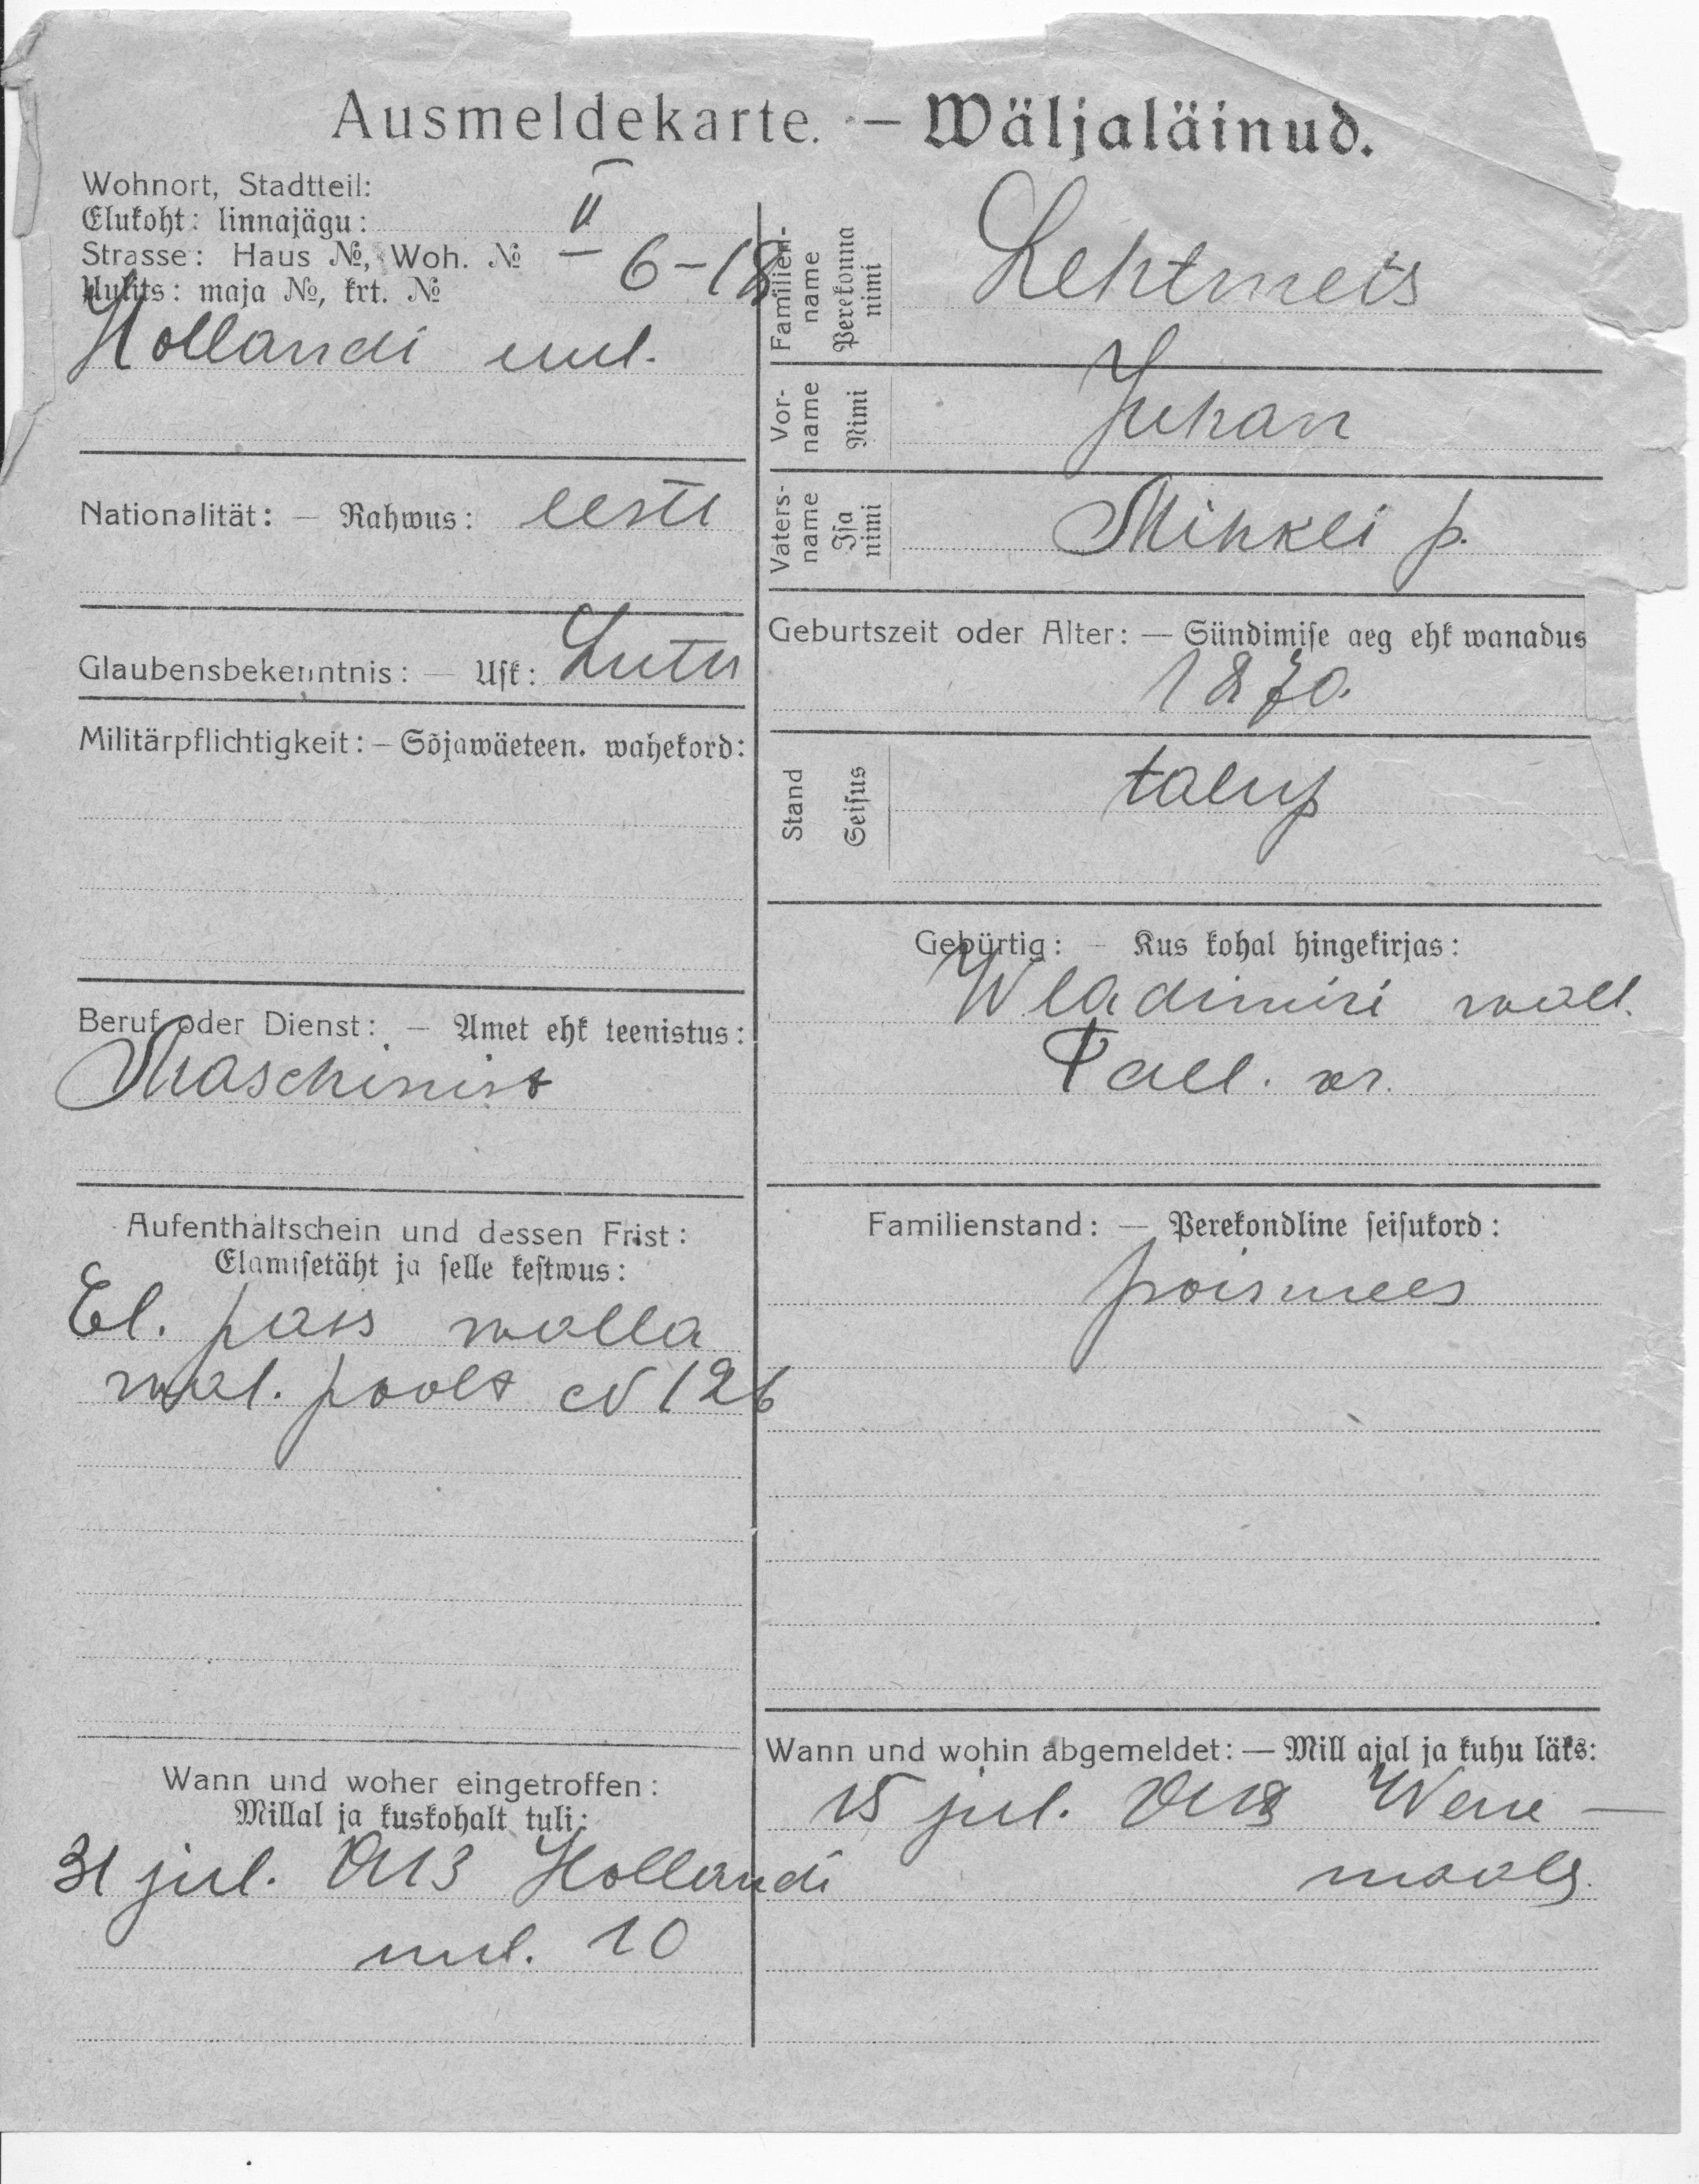 Ausmeldekarte. — Wäljaläinud.
Wohnort, Stadtteil:
Elukoht: linnajägu: II
Strasse: Haus №, Woh. №
Uulits: maja №, krt. № 6-18
Hollandi uul.
Nationalität: — Rahwus: eesti
Glaubensbekenntnis: — Usk: Luter
Militärpflichtigkeit: — Sõjawäeteen. wahekord:
Beruf oder Dienst: — Amet ehk teenistus:
Maschinist
Aufenthaltschein und dessen Frist:
Elamisetäht ja selle kestwus:
El. pass walla
wal. poolt № 126
Wann und woher eingetroffen:
Millal ja kuskohalt tuli:
31 jul. 1913 Hollandi
uul. 10
Familienname Perekonna nimi Lehtmets
Vorname Nimi Juhan
Vatersname Isa nimi Mihkli p.
Geburtszeit oder Alter: — Sündimise aeg ehk wanadus
1870.
Stand Seisus talup
Gebürtig: — Kus kohal hingekirjas:
Wladimiri wall.
Tall. kr.
Familienstand: — Perekondline seisukord:
poismees
Wann und wohin abgemeldet: — Mill ajal ja kuhu läks:
15 jul. Wene-
maale